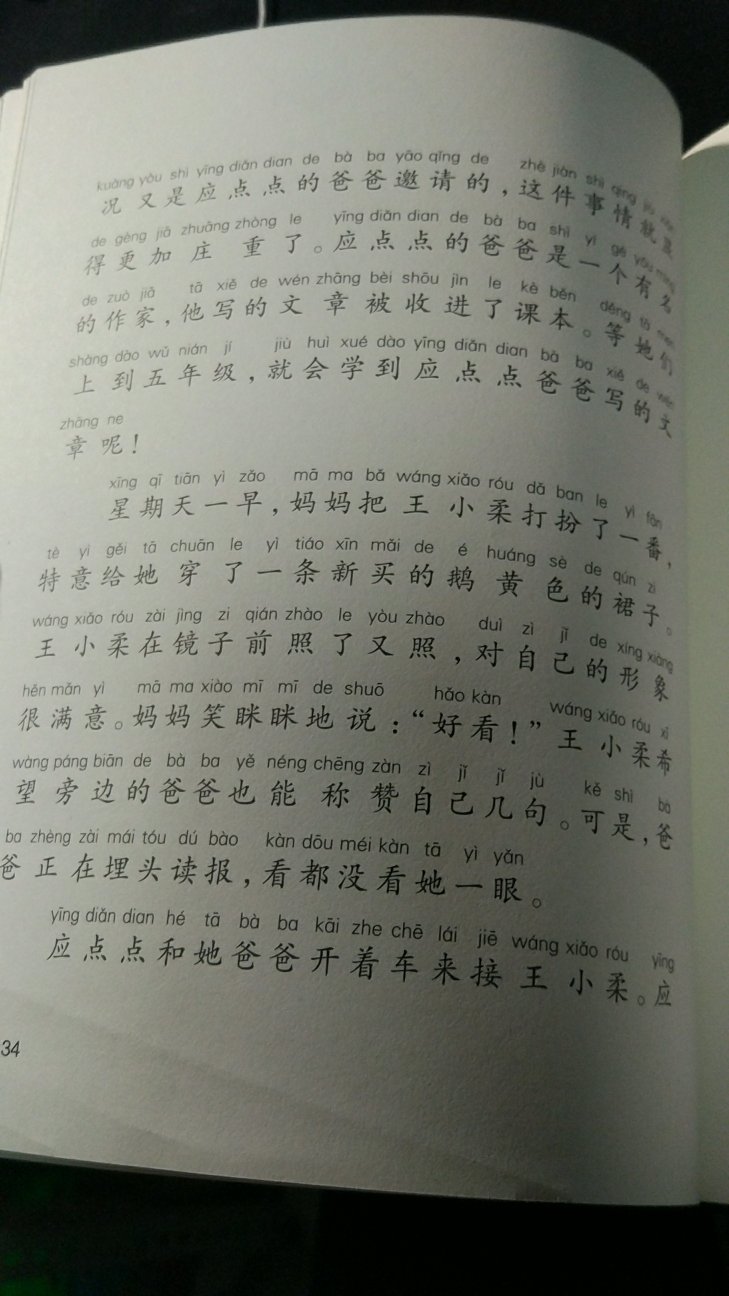 kuàng yòu shì yīng diǎn dian de bà ba yāo qǐng de zhè jiàn shì qing jiù
况又是应点点的爸爸邀请的，这件事情就显
de gèng jiā zhuāng zhòng le yīng diǎn dian de bà ba shì yí gè yǒu míng
得更加庄重了。应点点的爸爸是一个有名
de zuò jiā tā xiě de wén zhāng bèi shōu jìn le kè běn děng tā men
的作家，他写的文章被收进了课本。等她们
shàng dào wǔ nián jí jiù huì xué dào yīng diǎn dian bà ba xiě de wén
上到五年级，就会学到应点点爸爸写的文
zhāng ne
章呢！
xīng qī tiān yì zǎo mā ma bǎ wáng xiǎo róu dǎ ban le yì fān
星期天一早，妈妈把王小柔打扮了一番，
tè yì gěi tā chuān le yì tiáo xīn mǎi de é huáng sè de qún zi
特意给她穿了一条新买的鹅黄色的裙子。
wáng xiǎo róu zài jìng zi qián zhào le yòu zhào duì zì jǐ de xíng xiàng
王小柔在镜子前照了又照，对自己的形象
hěn mǎn yì mā ma xiào mī mī de shuō hǎo kàn wáng xiǎo róu xī
很满意。妈妈笑眯眯地说：“好看！”王小柔希
wàng páng biān de bà ba yě néng chēng zàn zì jǐ jǐ jù kě shì bà
望旁边的爸爸也能称赞自己几句。可是，爸
ba zhèng zài mái tóu dú bào kàn dōu méi kàn tā yì yǎn
爸正在埋头读报，看都没看她一眼。
yīng diǎn dian hé tā bà ba kāi zhe chē lái jiē wáng xiǎo róu yīng
应点点和她爸爸开着车来接王小柔。应
34